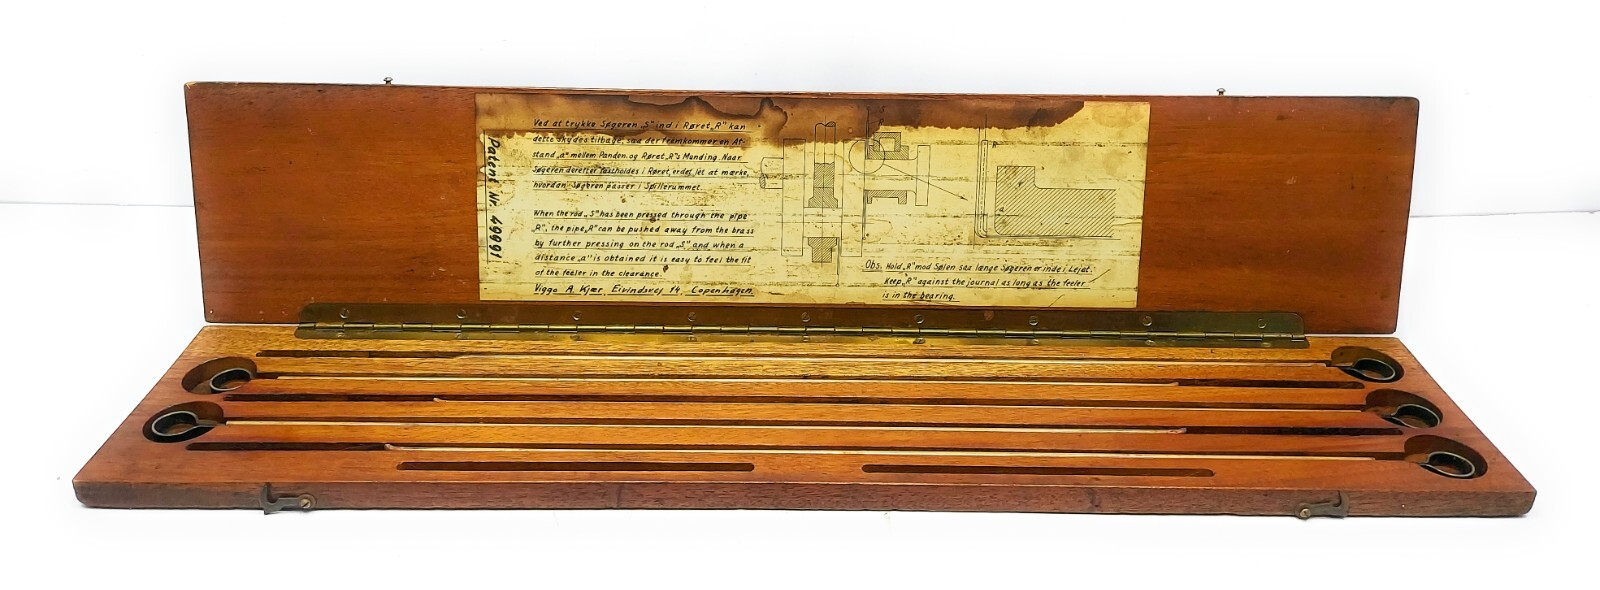 Patent Nr. 49991
Ved at trykke Søgeren „S" ind i Røret „R" kan
dette skydes tilbage, saa der fremkommer en Af-
stand „a" mellem Panden og Røret „R"s Munding. Naar
Søgeren derefter fastholdes i Røret, er det let at mærke,
hvordan Søgeren passer i Spillerummet.
When the rod „S" has been pressed through the pipe
„R", the pipe „R" can be pushed away from the brass
by further pressing on the rod „S" and when a
distance „a" is obtained it is easy to feel the fit
of the feeler in the clearance.
Viggo A Kjær, Eivindsvej 14, Copenhagen.
Obs. Hold „R" mod Sølen saa længe Søgeren er inde i Lejet.
Keep „R" against the journal as long as the feeler
is in the bearing.
R
a